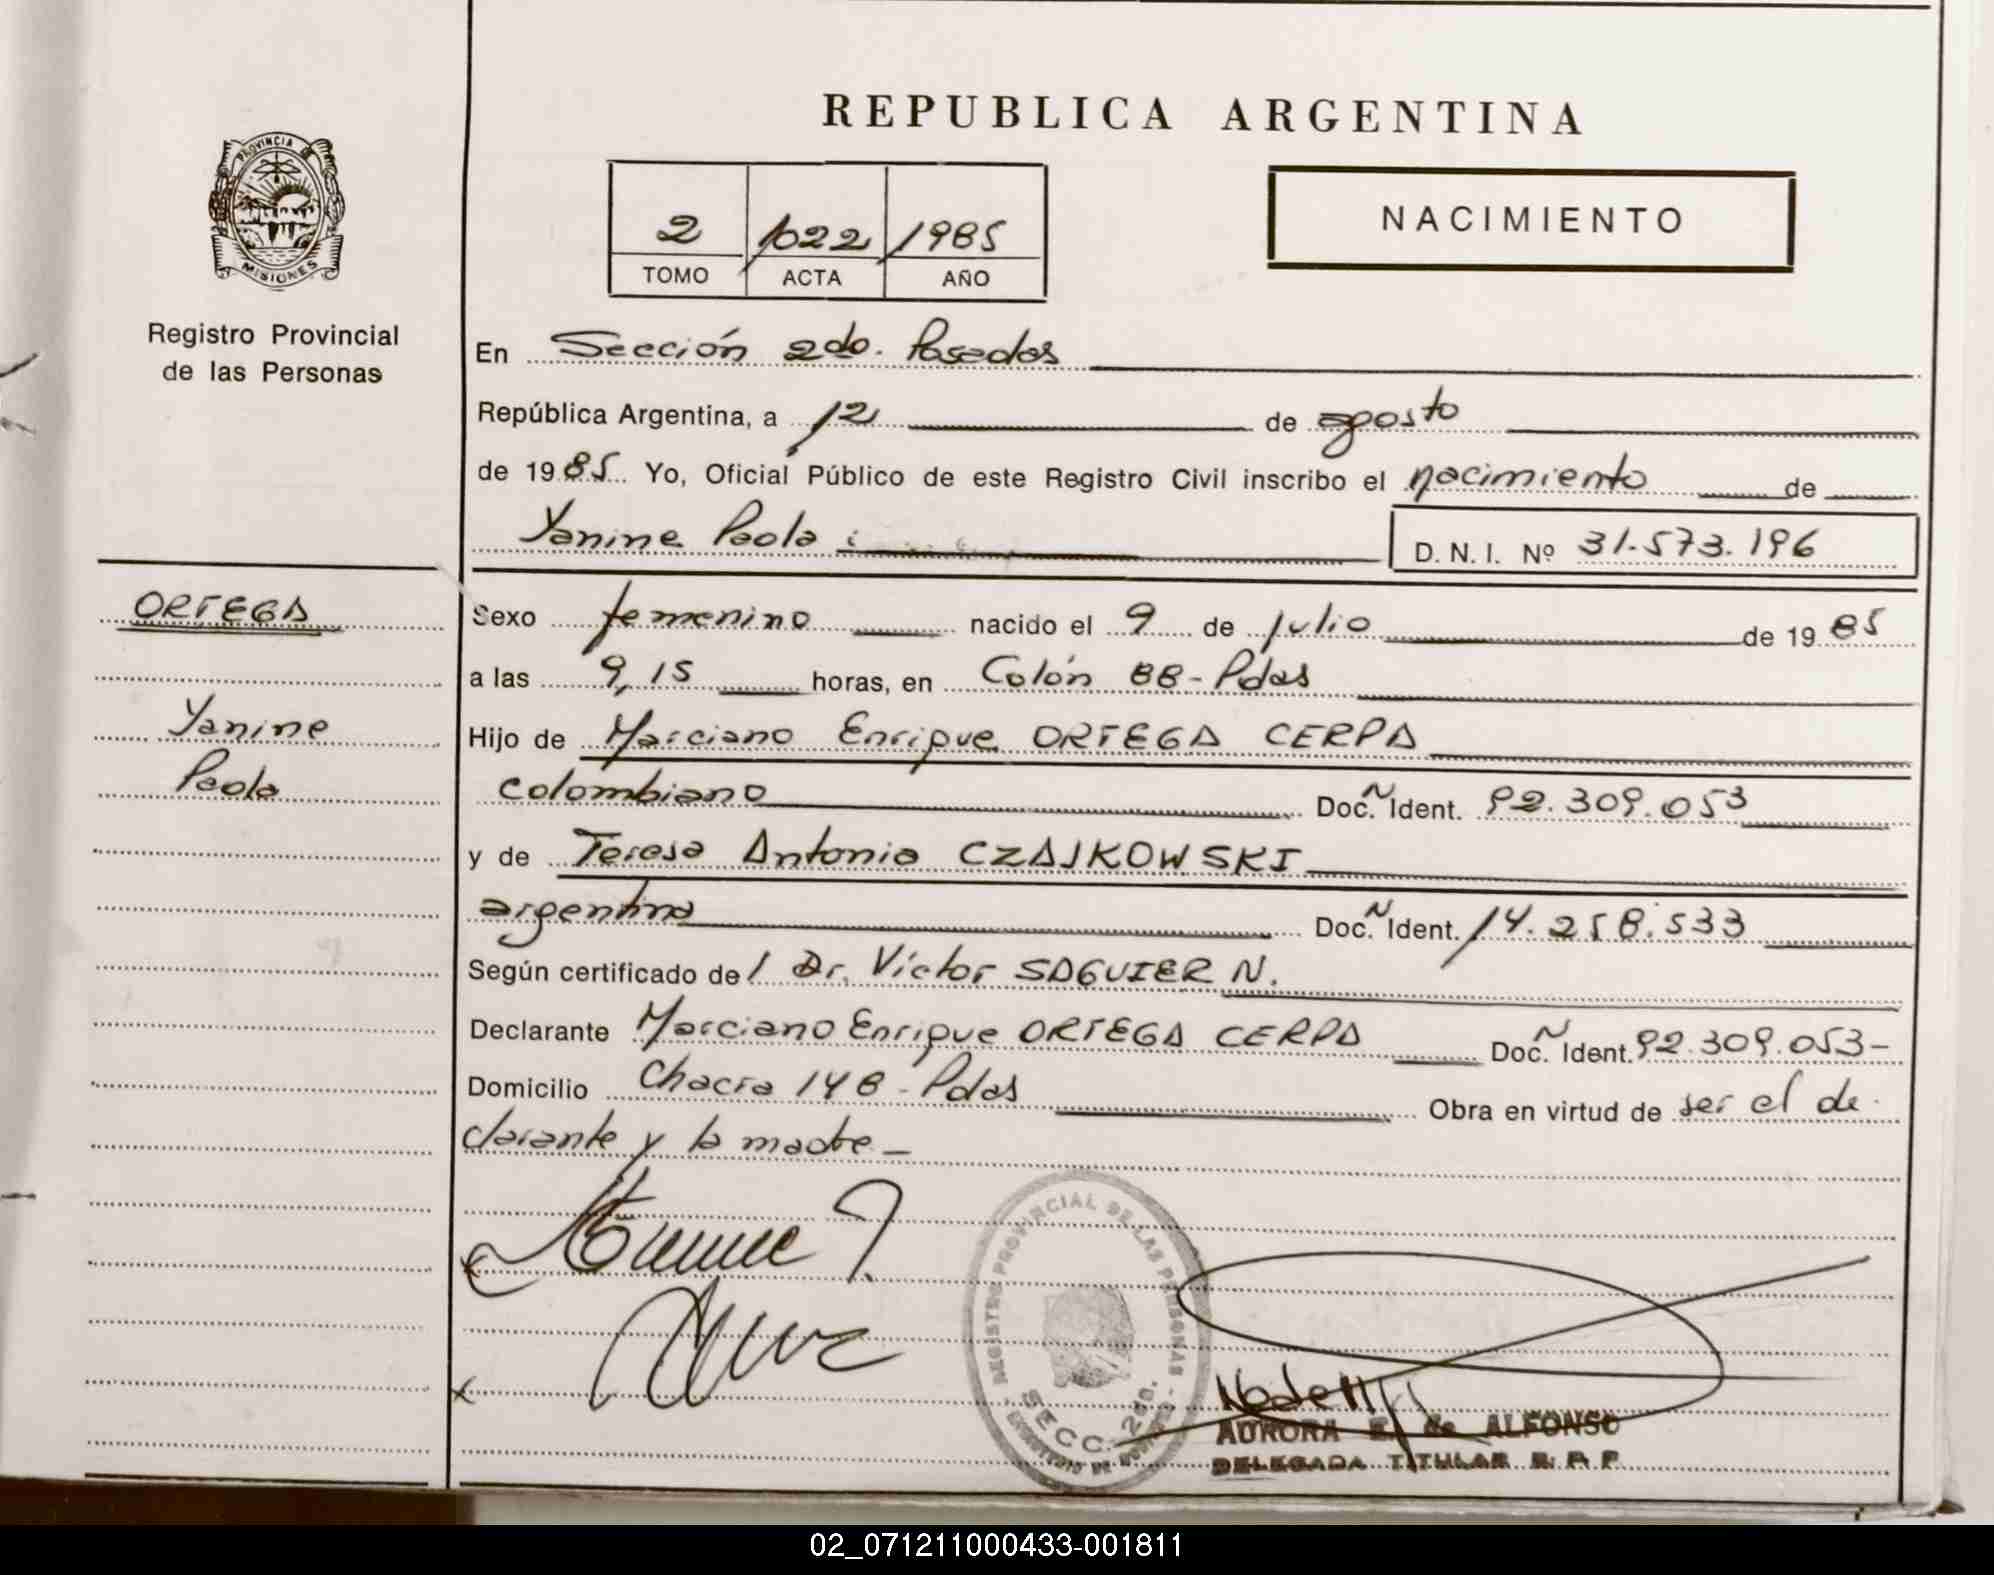 REPUBLICA ARGENTINA
PROVINCIA DE
MISIONES
Registro Provincial
de las Personas
2 1022 1985
TOMO ACTA AÑO
NACIMIENTO
En Sección 2do. Posadas
República Argentina, a 12 de agosto
de 1985 Yo, Oficial Público de este Registro Civil inscribo el nacimiento de
Yanine Paola :
D. N. I. Nº 31.573.196
ORTEGA
Yanine
Paola
Sexo femenino nacido el 9 de julio de 1985
a las 9,15 horas, en Colón BB - Pdas
Hijo de Marciano Enrique ORTEGA CERPA
colombiano Doc. Ident. 92.309.053
y de Teresa Antonia CZAJKOWSKI
argentina Doc. Ident. 14.258.533
Según certificado de / Dr. Víctor SAGUIER N.
Declarante Marciano Enrique ORTEGA CERPA Doc. Ident. 92.309.053-
Domicilio Chacra 148 - Pdas Obra en virtud de ser el de-
clarante y la madre -
REGISTRO PROVINCIAL DE LAS PERSONAS
SECC. 2da.
AURORA E. de ALFONSO
DELEGADA TITULAR R. P. P.
02_071211000433-001811